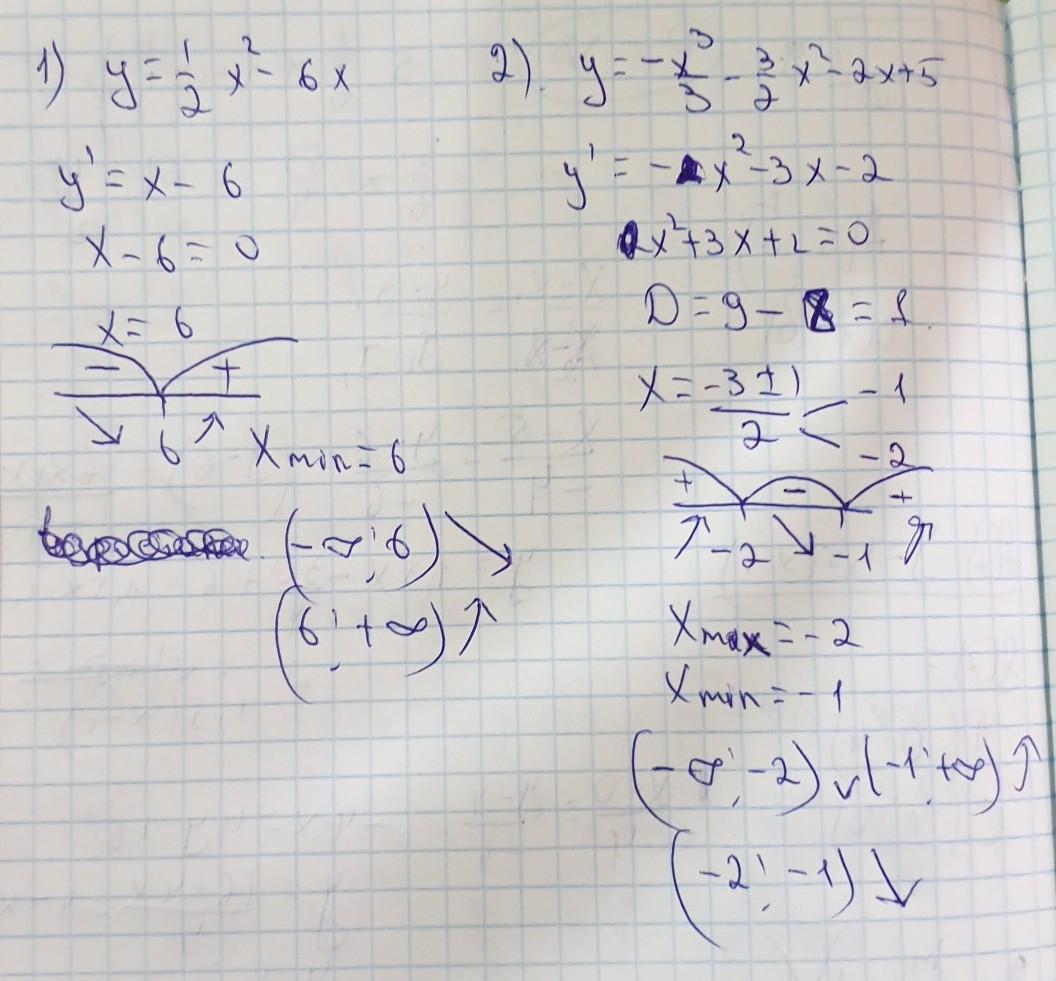 1) y = 1/2 x² - 6x
y' = x - 6
x - 6 = 0
x = 6
- +
↘ 6 ↗ Xmin = 6
(-∞; 6) ↘
(6; +∞) ↗
2). y = -x³/3 - 3/2 x² - 2x + 5
y' = -x² - 3x - 2
x² + 3x + 2 = 0
D = 9 - 8 = 1
X = (-3 ± 1)/2 < -1
-2
+ - +
↗ -2 ↘ -1 ↗
Xmax = -2
Xmin = -1
(-∞; -2) ∪ (-1; +∞) ↗
(-2; -1) ↘